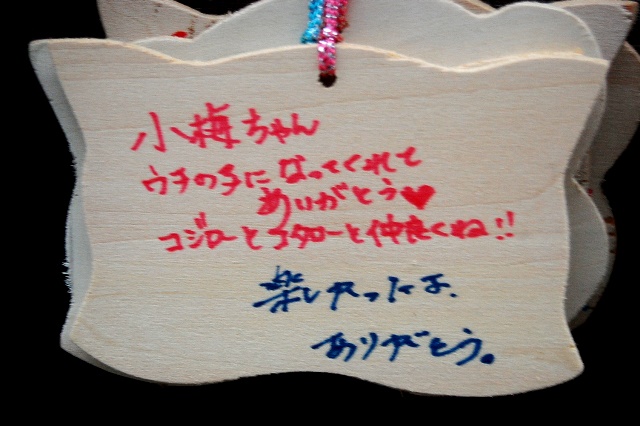 小梅ちゃん
ウチの子になってくれて
ありがとう♥
コジローとコタローと仲良くね!!
楽しかったよ、
ありがとう。